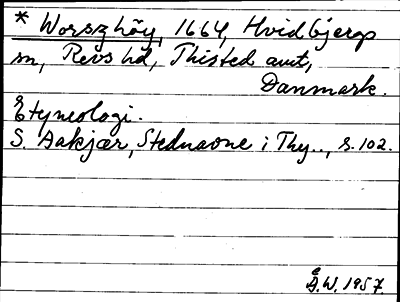 * Worszhöy, 1664, Hvidbjerg
sn, Revs hd, Thisted amt,
Danmark.
Etymologi.
S. Aakjær, Stednavne i Thy.., s. 102.
Å.W. 1957.